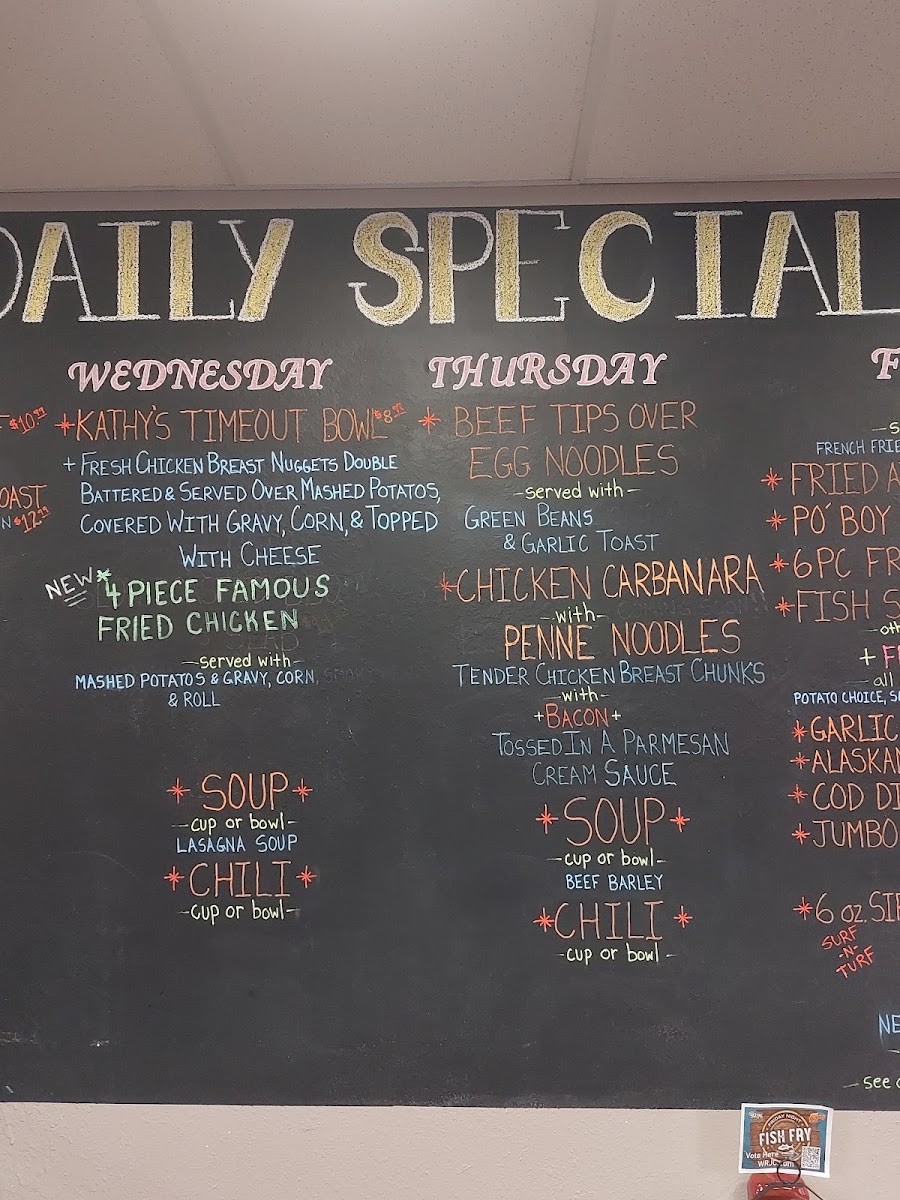 DAILY SPECIAL
$10.99
OAST
$12.99
WEDNESDAY
*KATHY'S TIMEOUT BOWL
+ FRESH CHICKEN BREAST NUGGETS DOUBLE
BATTERED & SERVED OVER MASHED POTATOS,
COVERED WITH GRAVY, CORN, & TOPPED
WITH CHEESE
NEW * 4 PIECE FAMOUS
FRIED CHICKEN
-served with-
MASHED POTATOS & GRAVY, CORN,
& ROLL
* SOUP *
-cup or bowl-
LASAGNA SOUP
* CHILI *
-cup or bowl-
THURSDAY
* BEEF TIPS OVER
EGG NOODLES
-served with-
GREEN BEANS
& GARLIC TOAST
*CHICKEN CARBANARA
-with-
PENNE NOODLES
TENDER CHICKEN BREAST CHUNKS
-with-
+BACON+
TOSSED IN A PARMESAN
CREAM SAUCE
* SOUP *
-cup or bowl-
BEEF BARLEY
*CHILI *
-cup or bowl-
F
-s
FRENCH FRIE
* FRIED A
* PO' BOY
* 6PC FR
* FISH S
-oth
+ F
-all
POTATO CHOICE, S
*GARLIC
*ALASKAN
*COD DI
*JUMBO
*6 oz. SIR
SURF
-N-
TURF
NE
-see
FRIDAY NIGHT
FISH FRY
Vote Here
WRJC.com